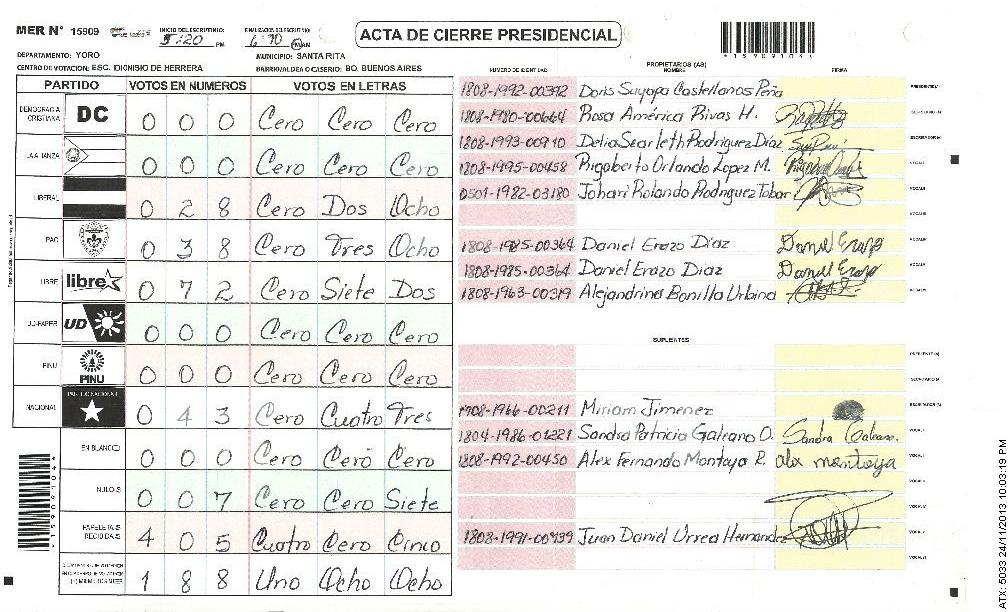 MER N° 15909
INICIO DEL ESCRUTINIO:
5:20 PM
FINALIZACION DEL ESCRUTINIO:
ACTA DE CIERRE PRESIDENCIAL
*15909104*
DEPARTAMENTO: YORO
MUNICIPIO: SANTA RITA
CENTRO DE VOTACION: ESC. DIONISIO DE HERRERA
BARRIO/ALDEA O CASERIO: BO. BUENOS AIRES
PARTIDO VOTOS EN NUMEROS VOTOS EN LETRAS
DEMOCRACIA CRISTIANA DC 0 0 0 Cero Cero Cero
LA ALIANZA 0 0 0 Cero Cero Cero
LIBERAL 0 2 8 Cero Dos Ocho
PAC 0 3 8 Cero Tres Ocho
LIBRE libre 0 7 2 Cero Siete Dos
UD-FAPER UD 0 0 0 Cero Cero Cero
PINU PINU 0 0 0 Cero Cero Cero
NACIONAL PARTIDO NACIONAL 0 4 3 Cero Cuatro Tres
EN BLANCO 0 0 0 Cero Cero Cero
NULOS 0 0 7 Cero Cero Siete
PAPELETAS RECIBIDAS 4 0 5 Cuatro Cero Cinco
1 8 8 Uno Ocho Ocho
PROPIETARIOS (AS)
NUMERO DE IDENTIDAD NOMBRE FIRMA
1808-1992-00392 Doris Suyapa Castellanos Peña
1808-1980-00664 Rosa América Rivas H.
1808-1993-00910 Delia Scarleth Rodriguez Díaz
1808-1995-00458 Rigoberto Orlando Lopez M.
0501-1982-03180 Johari Rolando Rodriguez Tobar
1808-1985-00364 Daniel Erazo Díaz Daniel Erazo
1808-1985-00364 Daniel Erazo Diaz Daniel Erazo
1808-1963-00319 Alejandrina Bonilla Urbina
SUPLENTES
1708-1966-00211 Miriam Jimenez
1804-1986-01221 Sandra Patricia Galeano O. Sandra Galeano.
1808-1992-00450 Alex Fernando Montoya R. alex montoya
1808-1991-00939 Juan Daniel Urrea Hernandez
ATX: 5033 24/11/2013 10:03:19 PM